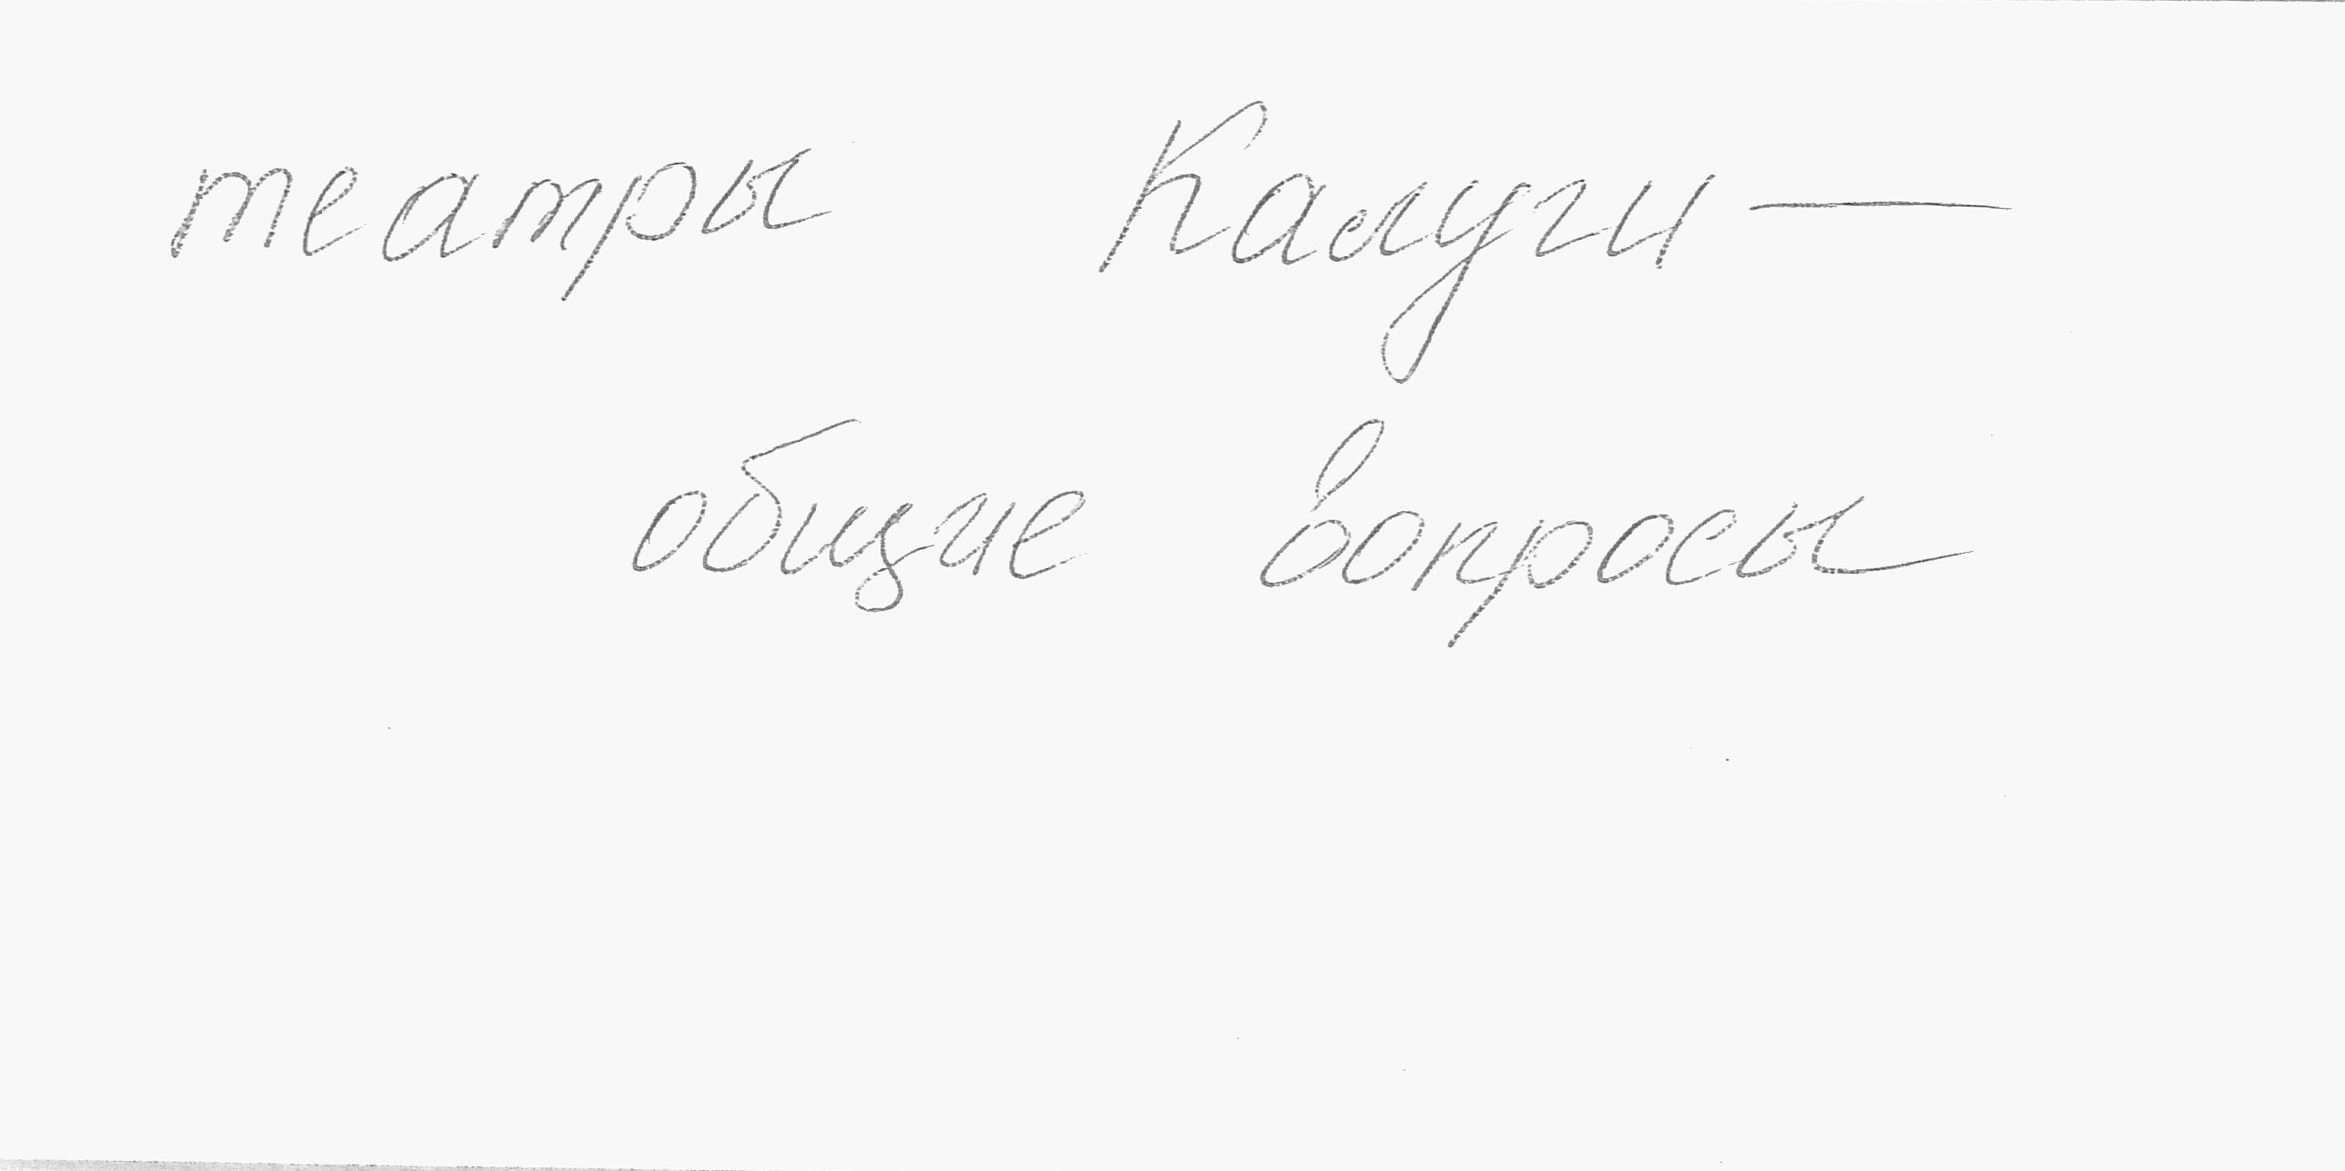 театры Калуги —
общие вопросы